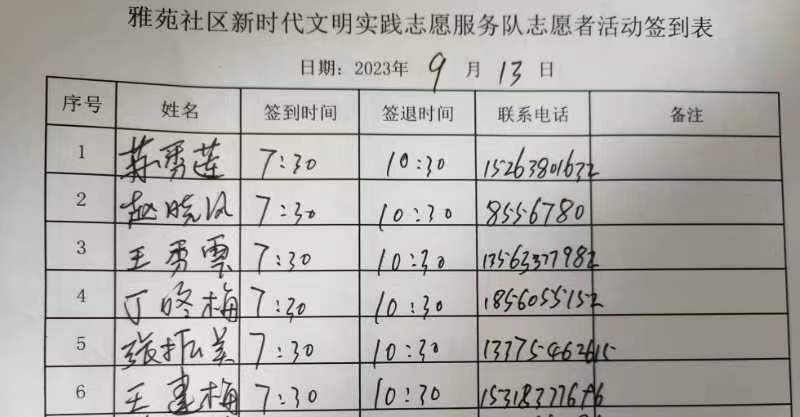 雅苑社区新时代文明实践志愿服务队志愿者活动签到表
日期：2023年 9 月 13 日
序号 姓名 签到时间 签退时间 联系电话 备注
1 秀莲 7:30 10:30 15263801632
2 赵晓风 7:30 10:30 8556780
3 王秀云 7:30 10:30 13563377982
4 丁咚梅 7:30 10:30 18560551512
5 张振美 7:30 10:30 13375462615
6 王建梅 7:30 10:30